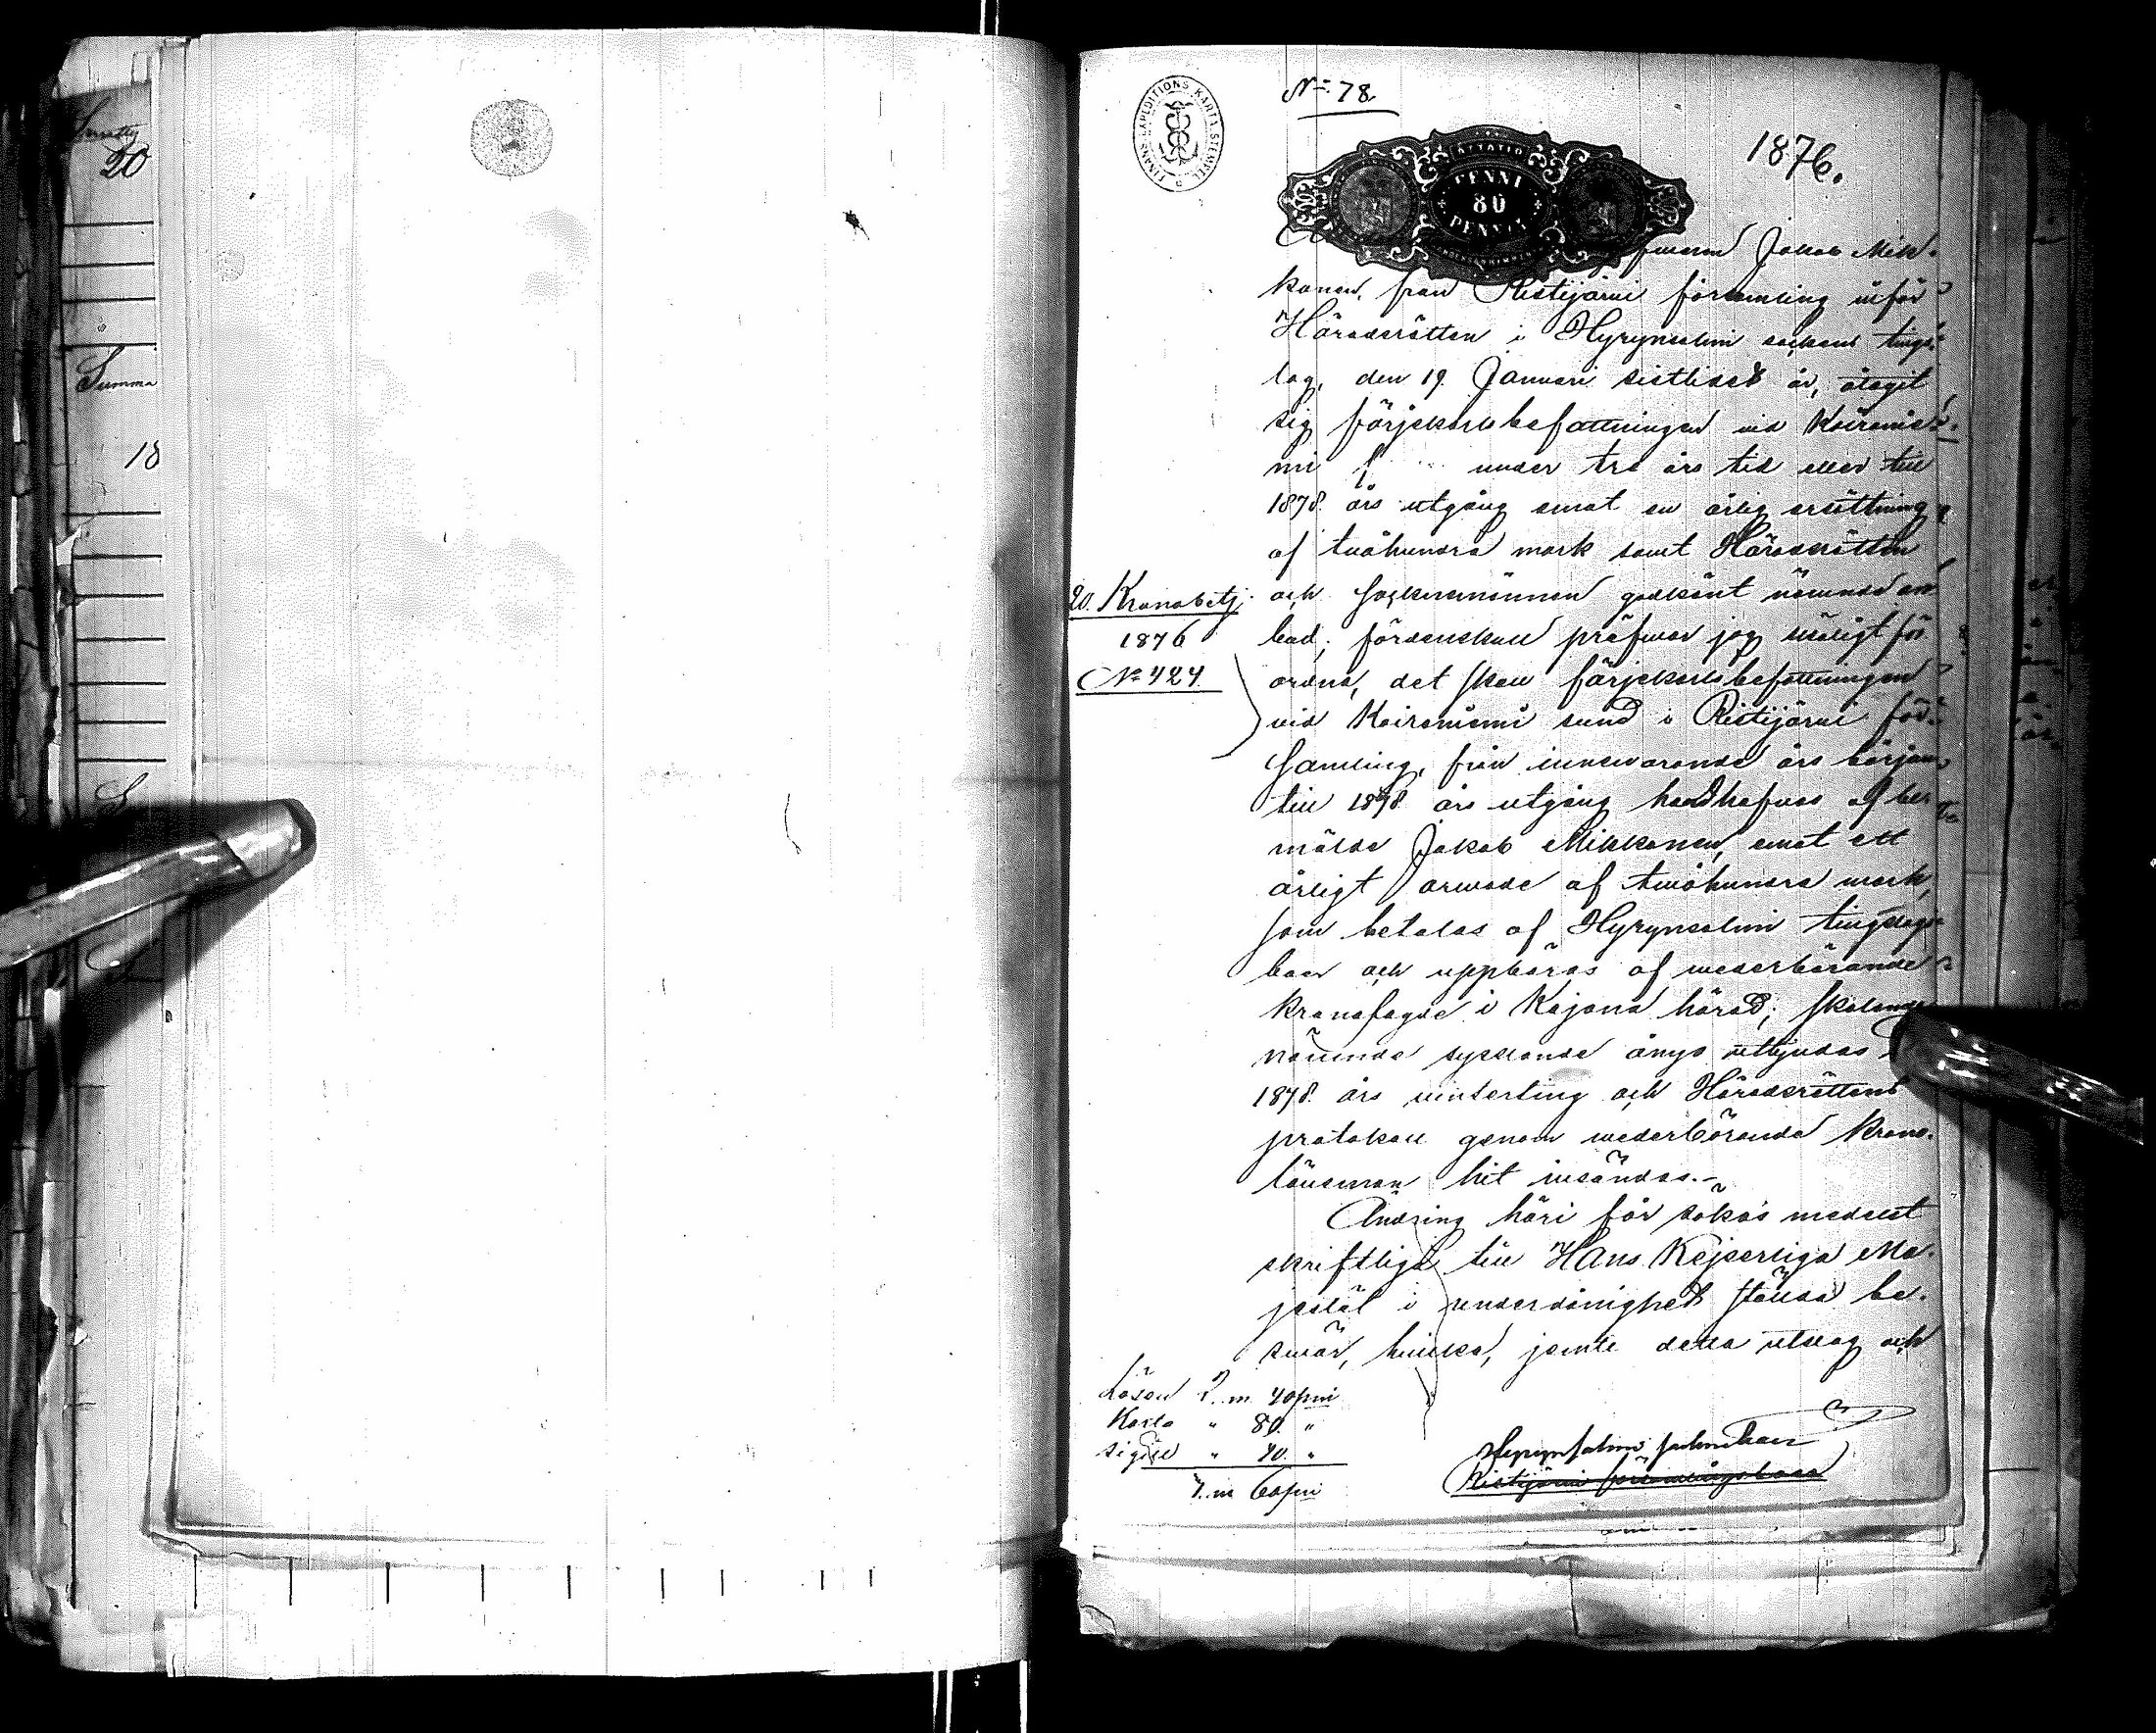 Summa
20
Summa
18
No 78
1876.
FINANS EXPEDITIONS KARTA STEMPEL
PENNI
80
PENNIÄ
Jakob Mik-
konen, från Ristijärvi församling inför
Häradsrätten i Hyrynsalmi sockens tings-
lag, den 19. Januari sistlidet år, åtagit
sig färjekarlsbefattningen vid Koiranie-
mi under tre års tid eller till
1878. års utgång emot en årlig ersättning
af tvåhundra mark samt Häradsrätten
och sockenemännen godkänt nämnde an-
bud; fördenskull pröfvar jag skäligt för-
ordna, det skall färjekarlsbefattningen
vid Koiraniemi sund i Ristijärvi för-
samling, från innevarande års början
till 1878 års utgång handhafvas af be-
mälde Jakob Mikkonen, emot ett
årligt arvode af tvåhundra mark,
som betalas af Hyrynsalmi tingslags-
boer och uppbäras af vederbörande
kronofogde i Kajana härad; skolande
nämnde syssla ånyo utbjudas
1878. års vinterting och Häradsrättens
protokoll genom vederbörande krono-
länsman hit insändas.-
Ändring häri får sökas medelst
skriftliga till Hans Kejserliga Ma-
jestät i underdånighet ställda be-
svär, hvilka, jemte detta utslag och
20. Kronobetj.
1876
No 424.
Lösen m 40 pni
Karta " 80. "
Sigill " 40. "
m 60 pni
Hyrynsalmi
Ristijärvi församlingsboer